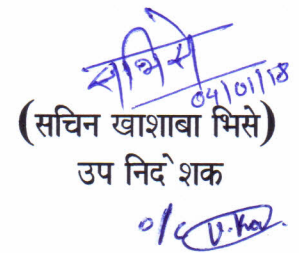 सभिसे
04/01/18
(सचिन खाशाबा भिसे)
उप निदेशक
o/c